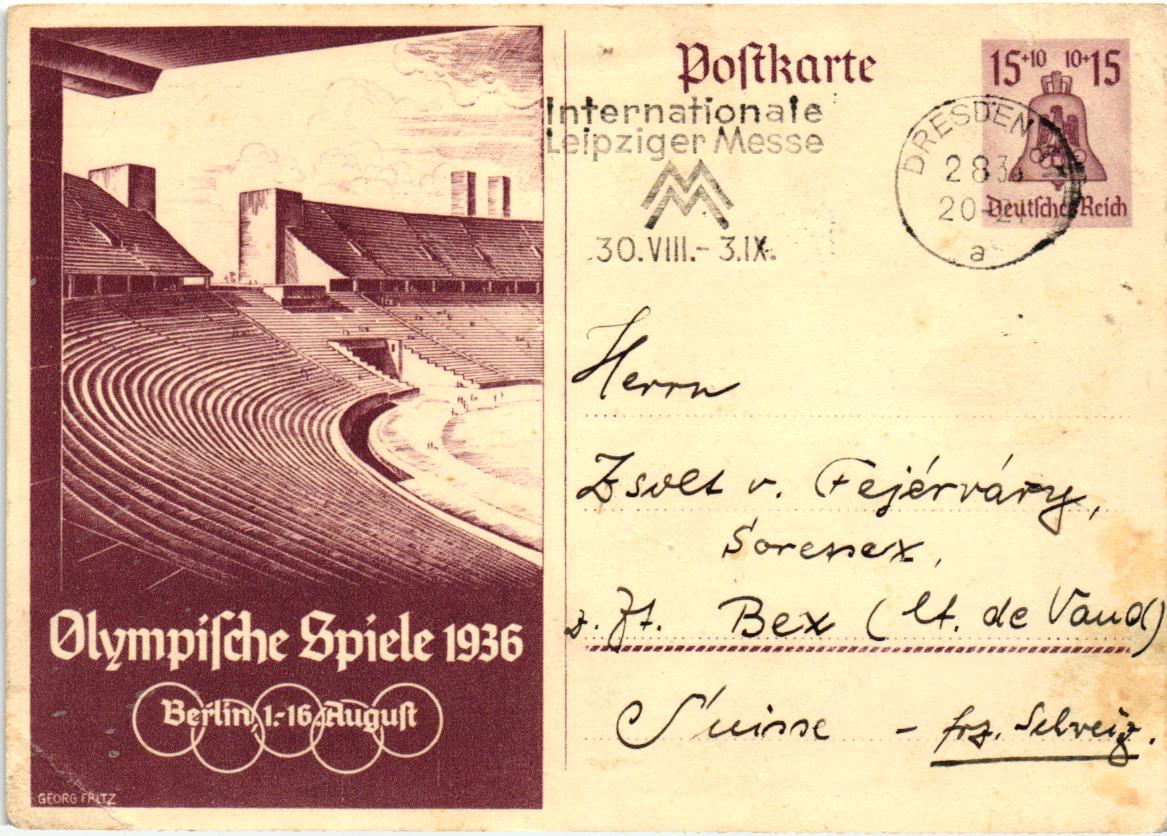 Olympische Spiele 1936
Berlin, 1.-16. August
GEORG FRITZ
Postkarte
15+10 10+15
Deutsches Reich
Internationale
Leipziger Messe
30.VIII.- 3.IX.
DRESDEN
2 8 36
20-21
a
Herrn
Zsolt v. Fejérváry,
z. Zt. Bex (Ct. de Vaud)
Suisse - frz. Schweiz.